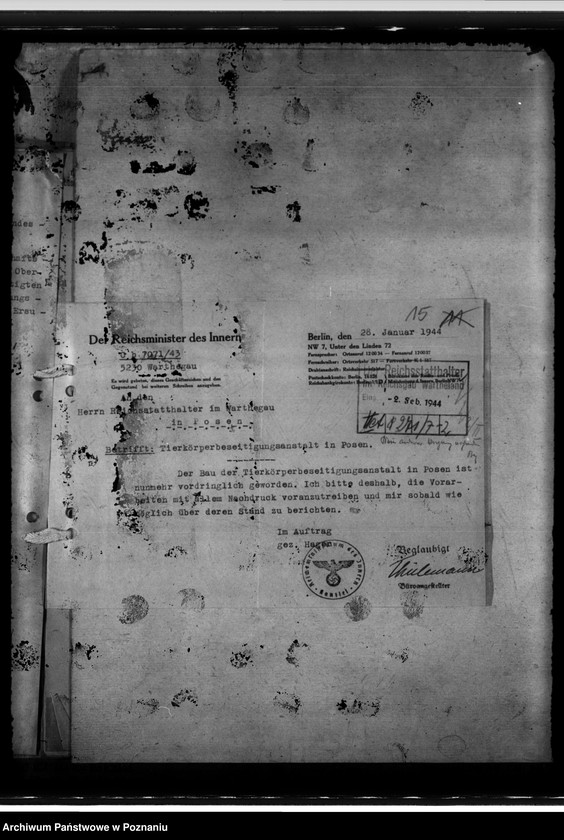 ndes -
hafts
Ober-
igten
ungs -
15
Der Reichsminister des Innern
7071/43
5230 Warthegau
Es wird gebeten, dieses Geschäftszeichen und den
Gegenstand bei weiteren Schreiben anzugeben.
Berlin, den 26. Januar 1944
NW 7, Unter den Linden 72
Fernsprecher: Ortsanruf 12 00 34 — Fernanruf 12 00 37
Reichsstatthalter
im Reichsgau Wartheland
Eing. - 2. Feb. 1944
An den
Herrn Reichsstatthalter im Warthegau
in Posen
Betrifft: Tierkörperbeseitigungsanstalt in Posen.
Der Bau der Tierkörperbeseitigungsanstalt in Posen ist
nunmehr vordringlich geworden. Ich bitte deshalb, die Vorar-
beiten mit allem Nachdruck voranzutreiben und mir sobald wie
möglich über deren Stand zu berichten.
Im Auftrag
gez. Hagen
Reichsministerium des Innern
Kanzlei
Beglaubigt
Büroangestellter
Archiwum Państwowe w Poznaniu